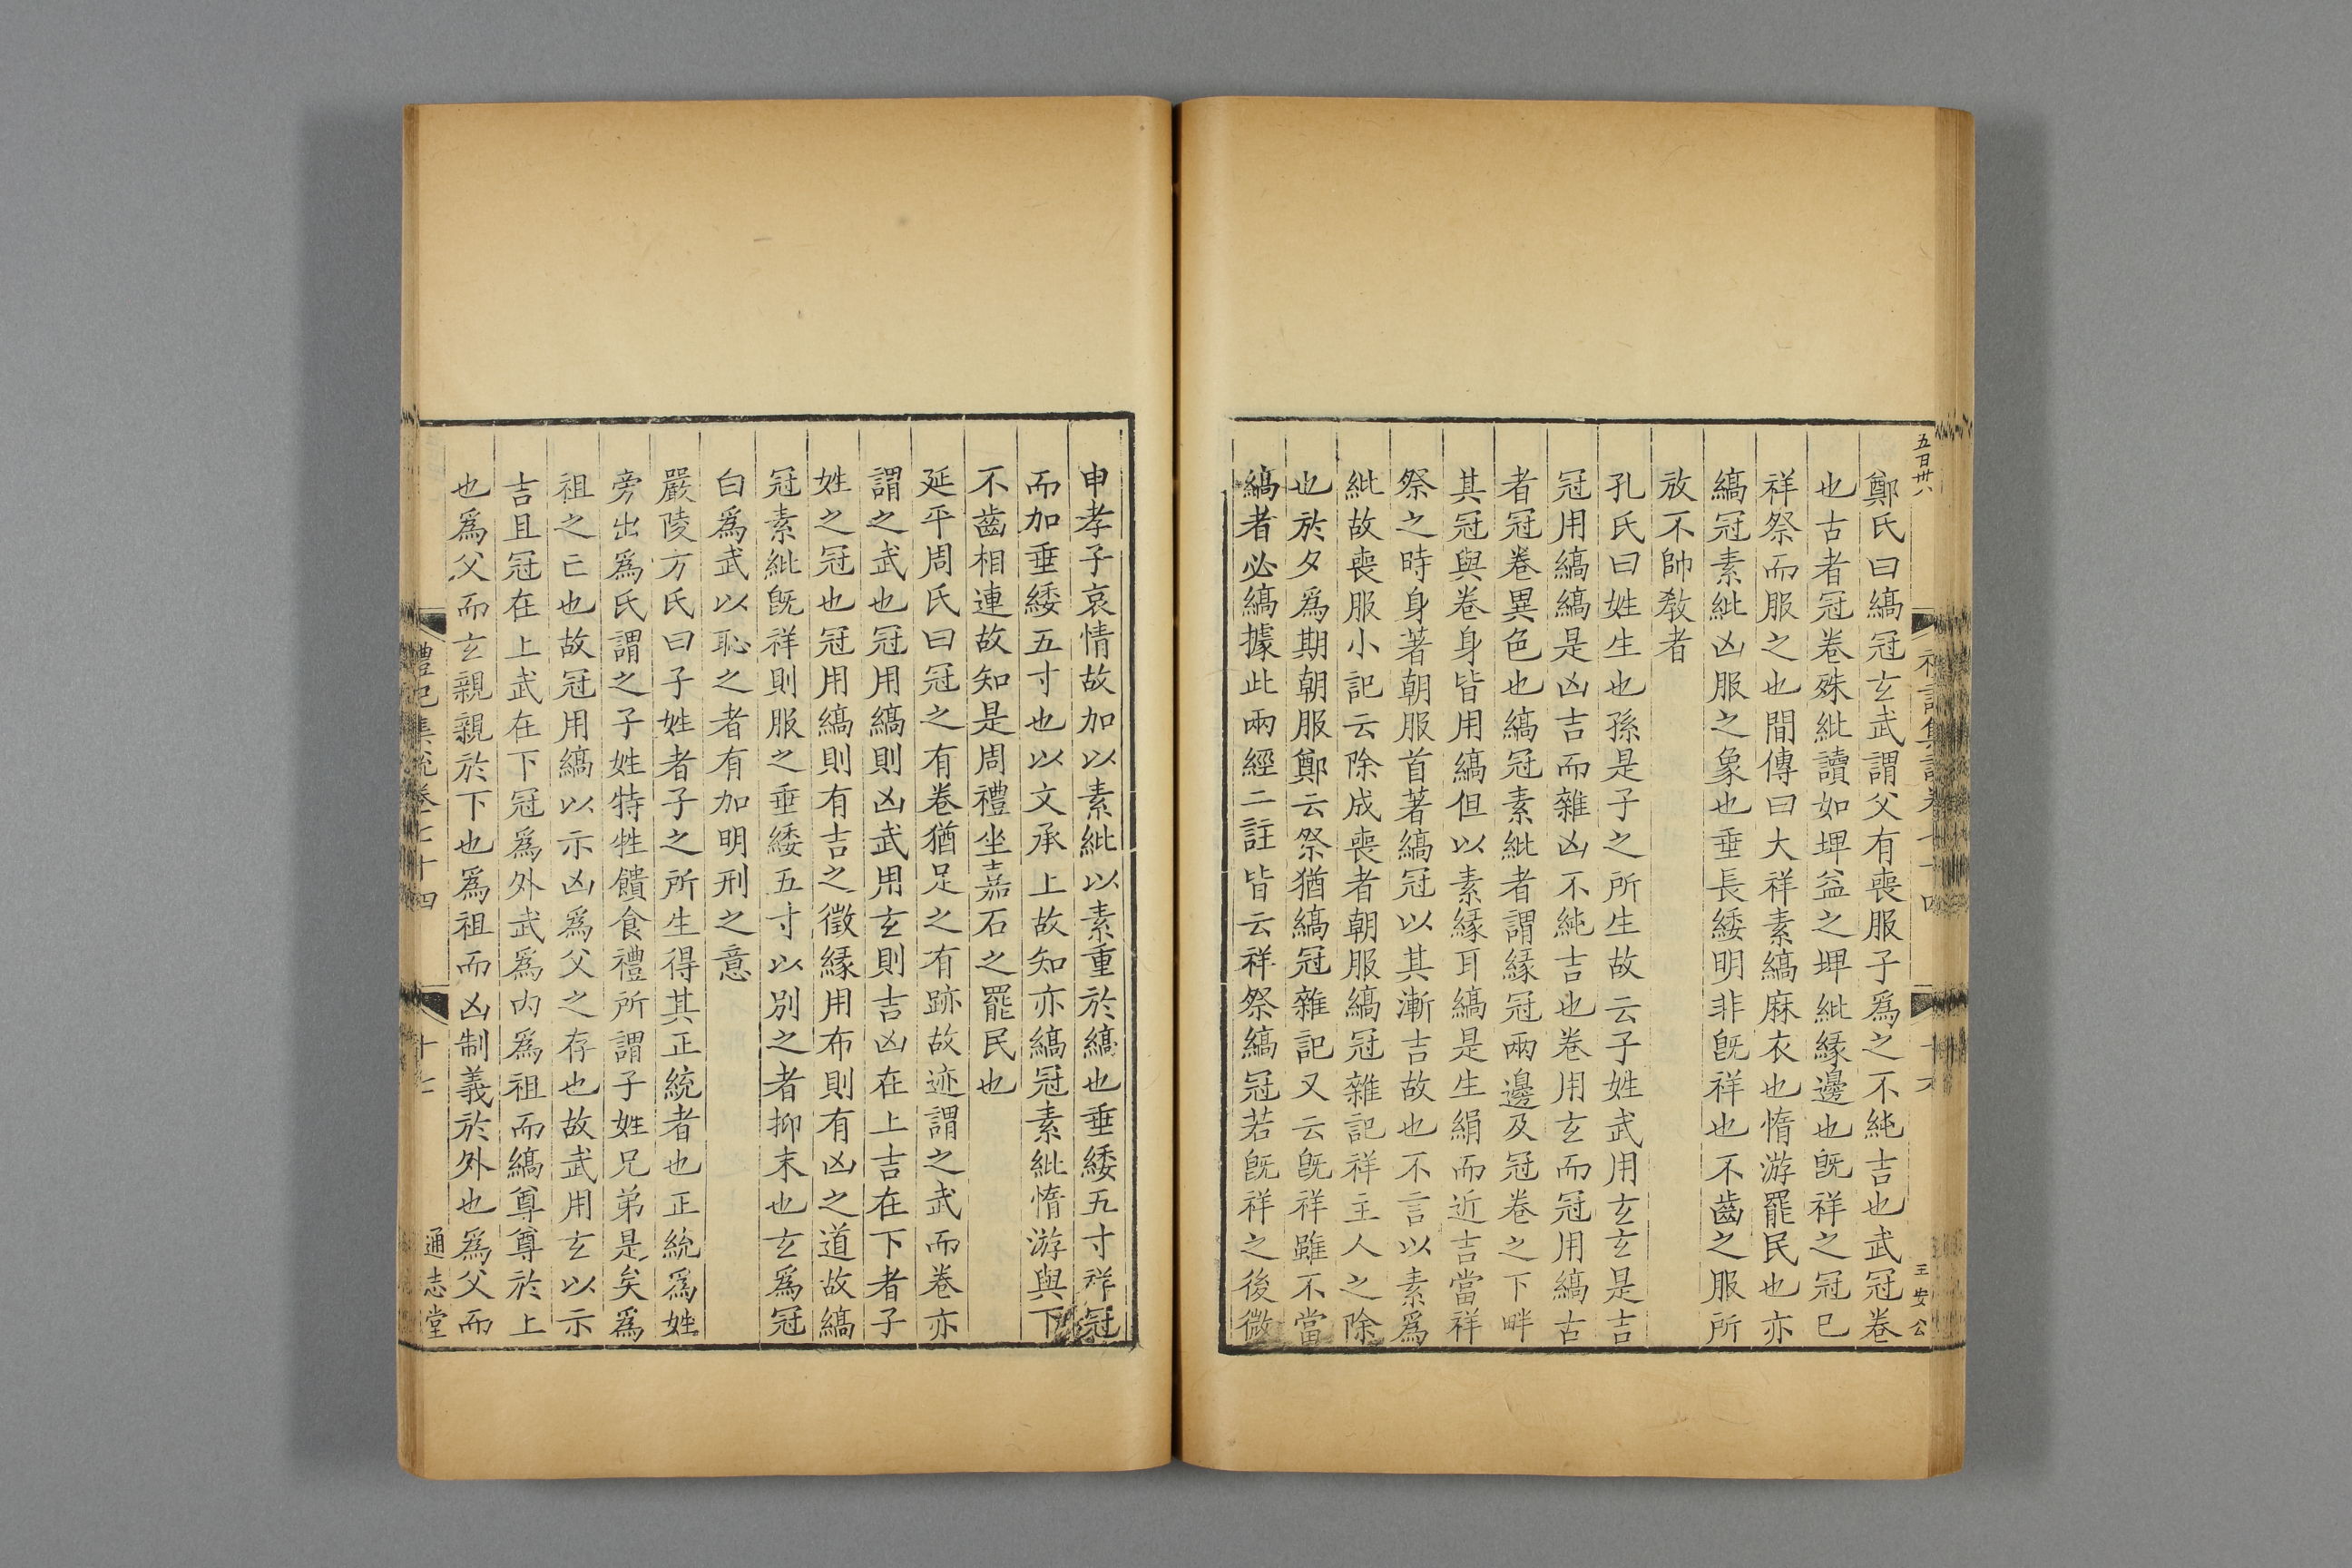 五百卅八
禮記集說卷七十四
王安公
鄭氏曰縞冠玄武謂父有喪服子爲之不純吉也武冠卷
也古者冠卷殊紕讀如埤益之埤紕緣邊也旣祥之冠已
祥祭而服之也間傳曰大祥素縞麻衣也惰游罷民也亦
縞冠素紕凶服之象也垂長緌明非旣祥也不齒之服所
放不帥敎者
孔氏曰姓生也孫是子之所生故云子姓武用玄玄是吉
冠用縞縞是凶吉而雜凶不純吉也卷用玄而冠用縞古
者冠卷異色也縞冠素紕者謂緣冠兩邊及冠卷之下畔
其冠與卷身皆用縞但以素緣耳縞是生絹而近吉當祥
祭之時身著朝服首著縞冠以其漸吉故也不言以素爲
紕故喪服小記云除成喪者朝服縞冠雜記祥主人之除
也於夕爲期朝服鄭云祭猶縞冠雜記又云旣祥雖不當
縞者必縞據此兩經二註皆云祥祭縞冠若旣祥之後微
申孝子哀情故加以素紕以素重於縞也垂緌五寸祥冠
而加垂緌五寸也以文承上故知亦縞冠素紕惰游與下
不齒相連故知是周禮坐嘉石之罷民也
延平周氏曰冠之有卷猶足之有跡故迹謂之武而卷亦
謂之武也冠用縞則凶武用玄則吉凶在上吉在下者子
姓之冠也冠用縞則有吉之徵緣用布則有凶之道故縞
冠素紕旣祥則服之垂緌五寸以別之者抑末也玄爲冠
白爲武以恥之者有加明刑之意
嚴陵方氏曰子姓者子之所生得其正統者也正統爲姓
旁出爲氏謂之子姓特牲饋食禮所謂子姓兄弟是矣爲
祖之亡也故冠用縞以示凶爲父之存也故武用玄以示
吉且冠在上武在下冠爲外武爲內爲祖而縞尊尊於上
也爲父而玄親親於下也爲祖而凶制義於外也爲父而
禮記集說卷七十四
十七
通志堂